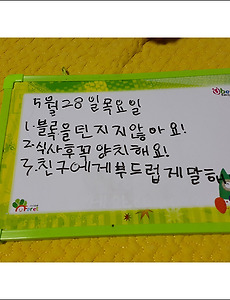 5월 28일 목요일
1. 블록을 던지지않아요!
2. 식사후꼭양치해요!
3. 친구에게부드럽게말해